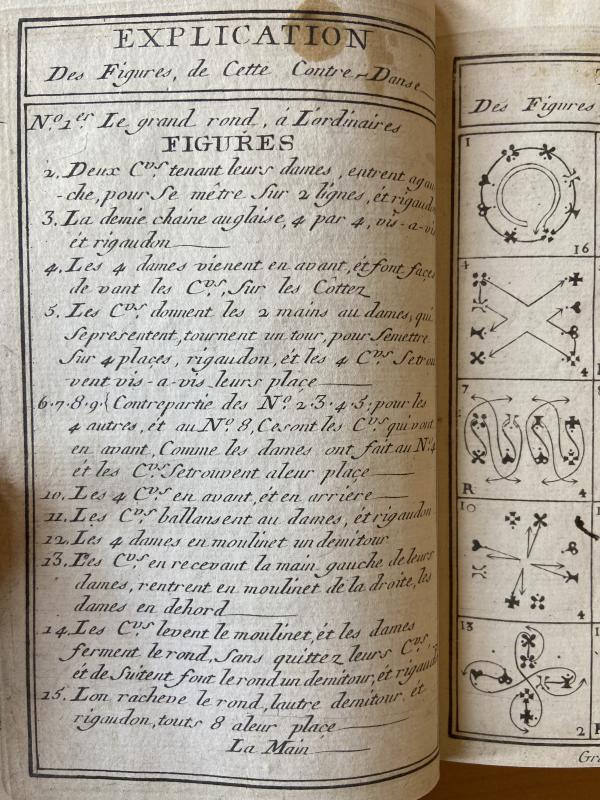 EXPLICATION
Des Figures, de Cette Contre-Danse
N.º 1.er Le grand rond, á Lordinaires
FIGURES
2. Deux C.vs tenant leurs dames, entrent agau
-che, pour Se mêtre Sur 2 lignes, ét rigaudon
3. La demie chaine anglaise, 4 par 4, vis-a-vis
ét rigaudon
4. Les 4 dames vienent en avant, ét font façe
de vant les C.vs, Sur les Cottez
5. Les C.vs donnent les 2 mains au dames, qui
Sepresentent, tournent un tour, pour Semettre
Sur 4 places, rigaudon, ét les 4 C.vs Setrou
vent vis-a-vis leurs place
6.7.8.9{Contrepartie des N.º 2.3.4.5; pour les
4 autres, ét au N.º 8, Cesont les C.vs qui vont
en avant, Comme les dames ont fait au N.º 4
ét les C.vs Setrouvent aleur plaçe
10. Les 4 C.vs en avant, ét en arriere
11. Les C.vs ballansent au dames, ét rigaudon
12. Les 4 dames en moulinet un demitour
13. Les C.vs en recevant la main gauche de leurs
dames, rentrent en moulinet de la droite, les
dames en dehord
14. Les C.vs levent le moulinet, ét les dames
ferment le rond, Sans quittez leurs C.vs
ét de Suitent, font le rond un demitour, ét rigaudon
15. Lon racheve le rond, lautre demitour ét
rigaudon, touts 8 aleur place
La Main
Des Figures
1
16
4
4
7
R
4
10
4
13
2
Gra